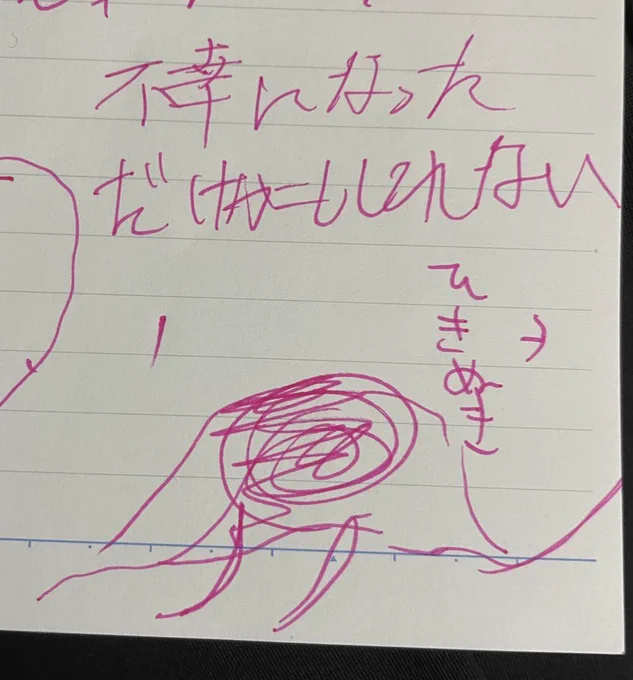 不幸になった
だけかもしれない
ひきぬき